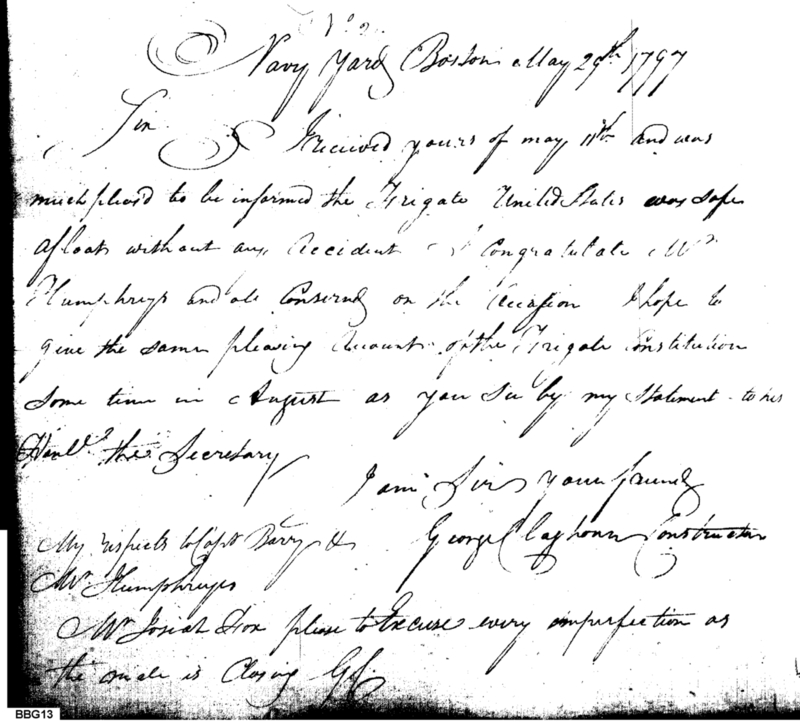 No 2
Navy Yard Boston May 29th 1797
Sir I received yours of may 11th and was
much pleas'd to be informed the Frigate United States was safe
afloat without any Accident I Congratulate Mr
Humphreys and all Conserned on the Occasion I hope to
give the same pleasing Account of the Frigate Constitution
some time in August as you see by my Statement to his
Honbl the Secretary
I am Sir your friend
George Claghorn Constructor
My respects to Capt Barry &
Mr Humphreys
Mr Josiah Fox please to Excuse every imperfection as
the male is Closing GC
BBG13